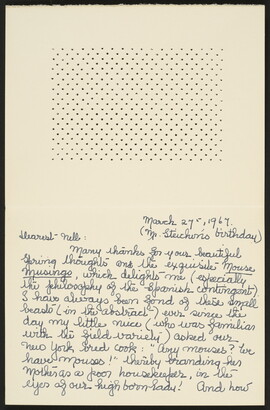 March 27, 1967.
(Mr. Steichen's birthday)
Dearest Nell:
Many thanks for your beautiful
Spring thoughts and the exquisite Mouse
Musings, which delights me (especially
the philosophy of the Spanish contingent)
I have always been fond of these small
beasts (in the abstract) ever since the
day my little niece (who was familiar
with the field variety) asked our
New York bred cook: "Any mouses? We
have mouses!" thereby branding her
mother as a poor housekeeper, in the
eyes of our high born lady! And how